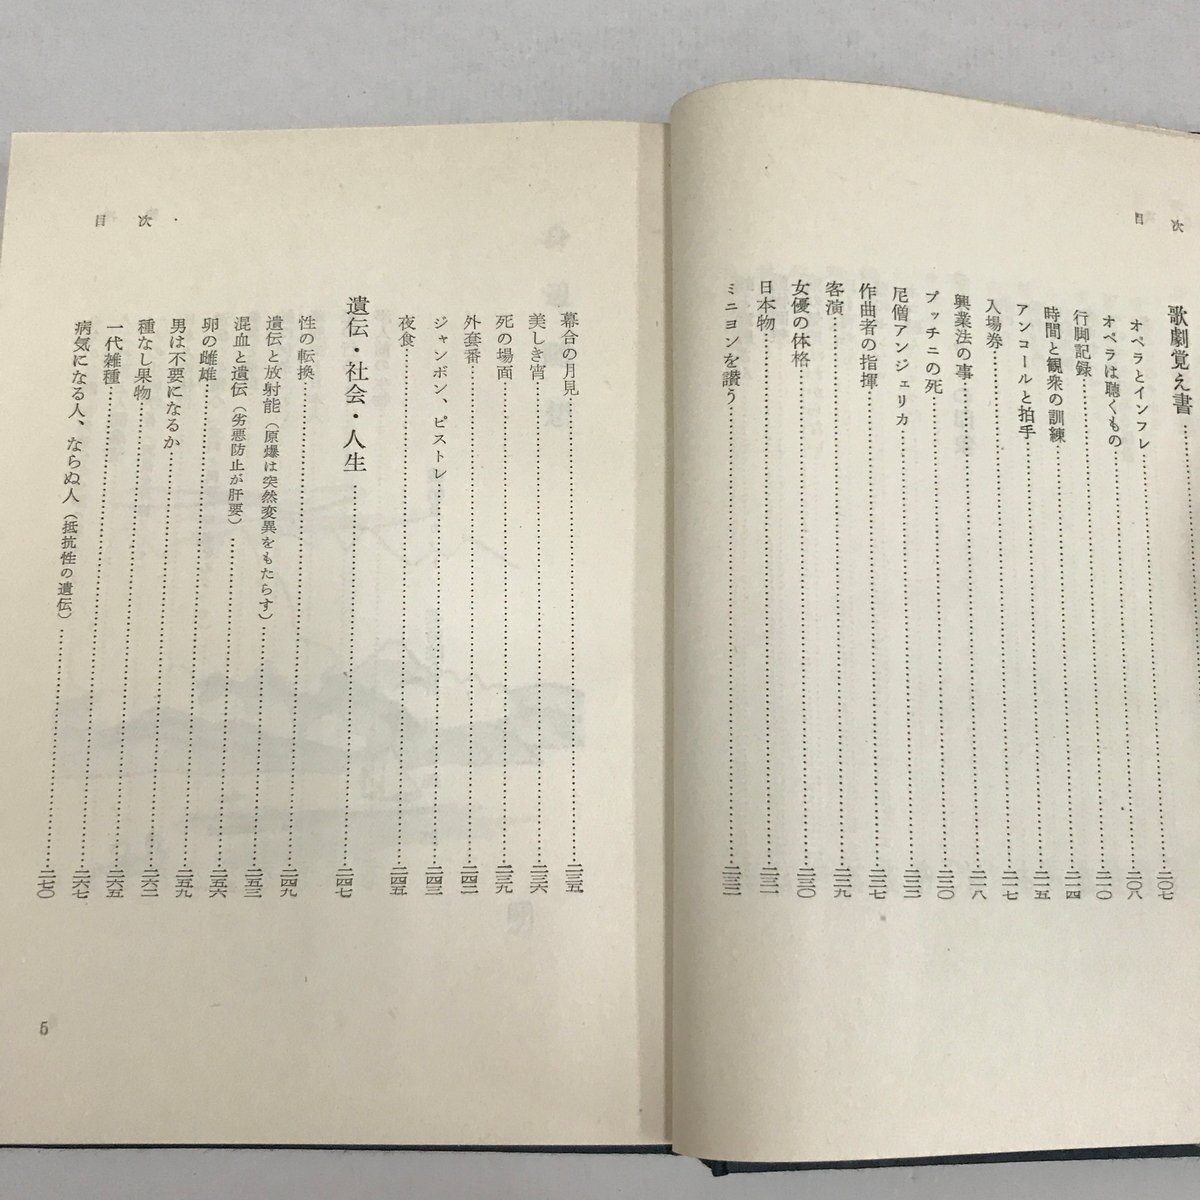 目次
歌劇覚え書
オペラとインフレ……二〇七
オペラは聴くもの……二〇八
行脚記録……二一〇
時間と観衆の訓練……二一四
アンコールと拍手……二一五
入場券……二一七
興業法の事……二一八
プッチニの死……二二〇
尼僧アンジェリカ……二二二
作曲者の指揮……二二七
客演……二二九
女優の体格……二三〇
日本物……二三一
ミニヨンを讃う……二三二
目次
幕合の月見……二三五
美しき宵……二三六
死の場面……二三九
外套番……二四二
ジャンボン、ピストレ……二四三
夜食……二四五
遺伝・社会・人生……二四七
性の転換……二四九
遺伝と放射能（原爆は突然変異をもたらす）……二五三
混血と遺伝（劣悪防止が肝要）……二五六
卵の雌雄……二五九
男は不要になるか……二六二
種なし果物……二六五
一代雑種……二六七
病気になる人、ならぬ人（抵抗性の遺伝）……二七〇
5